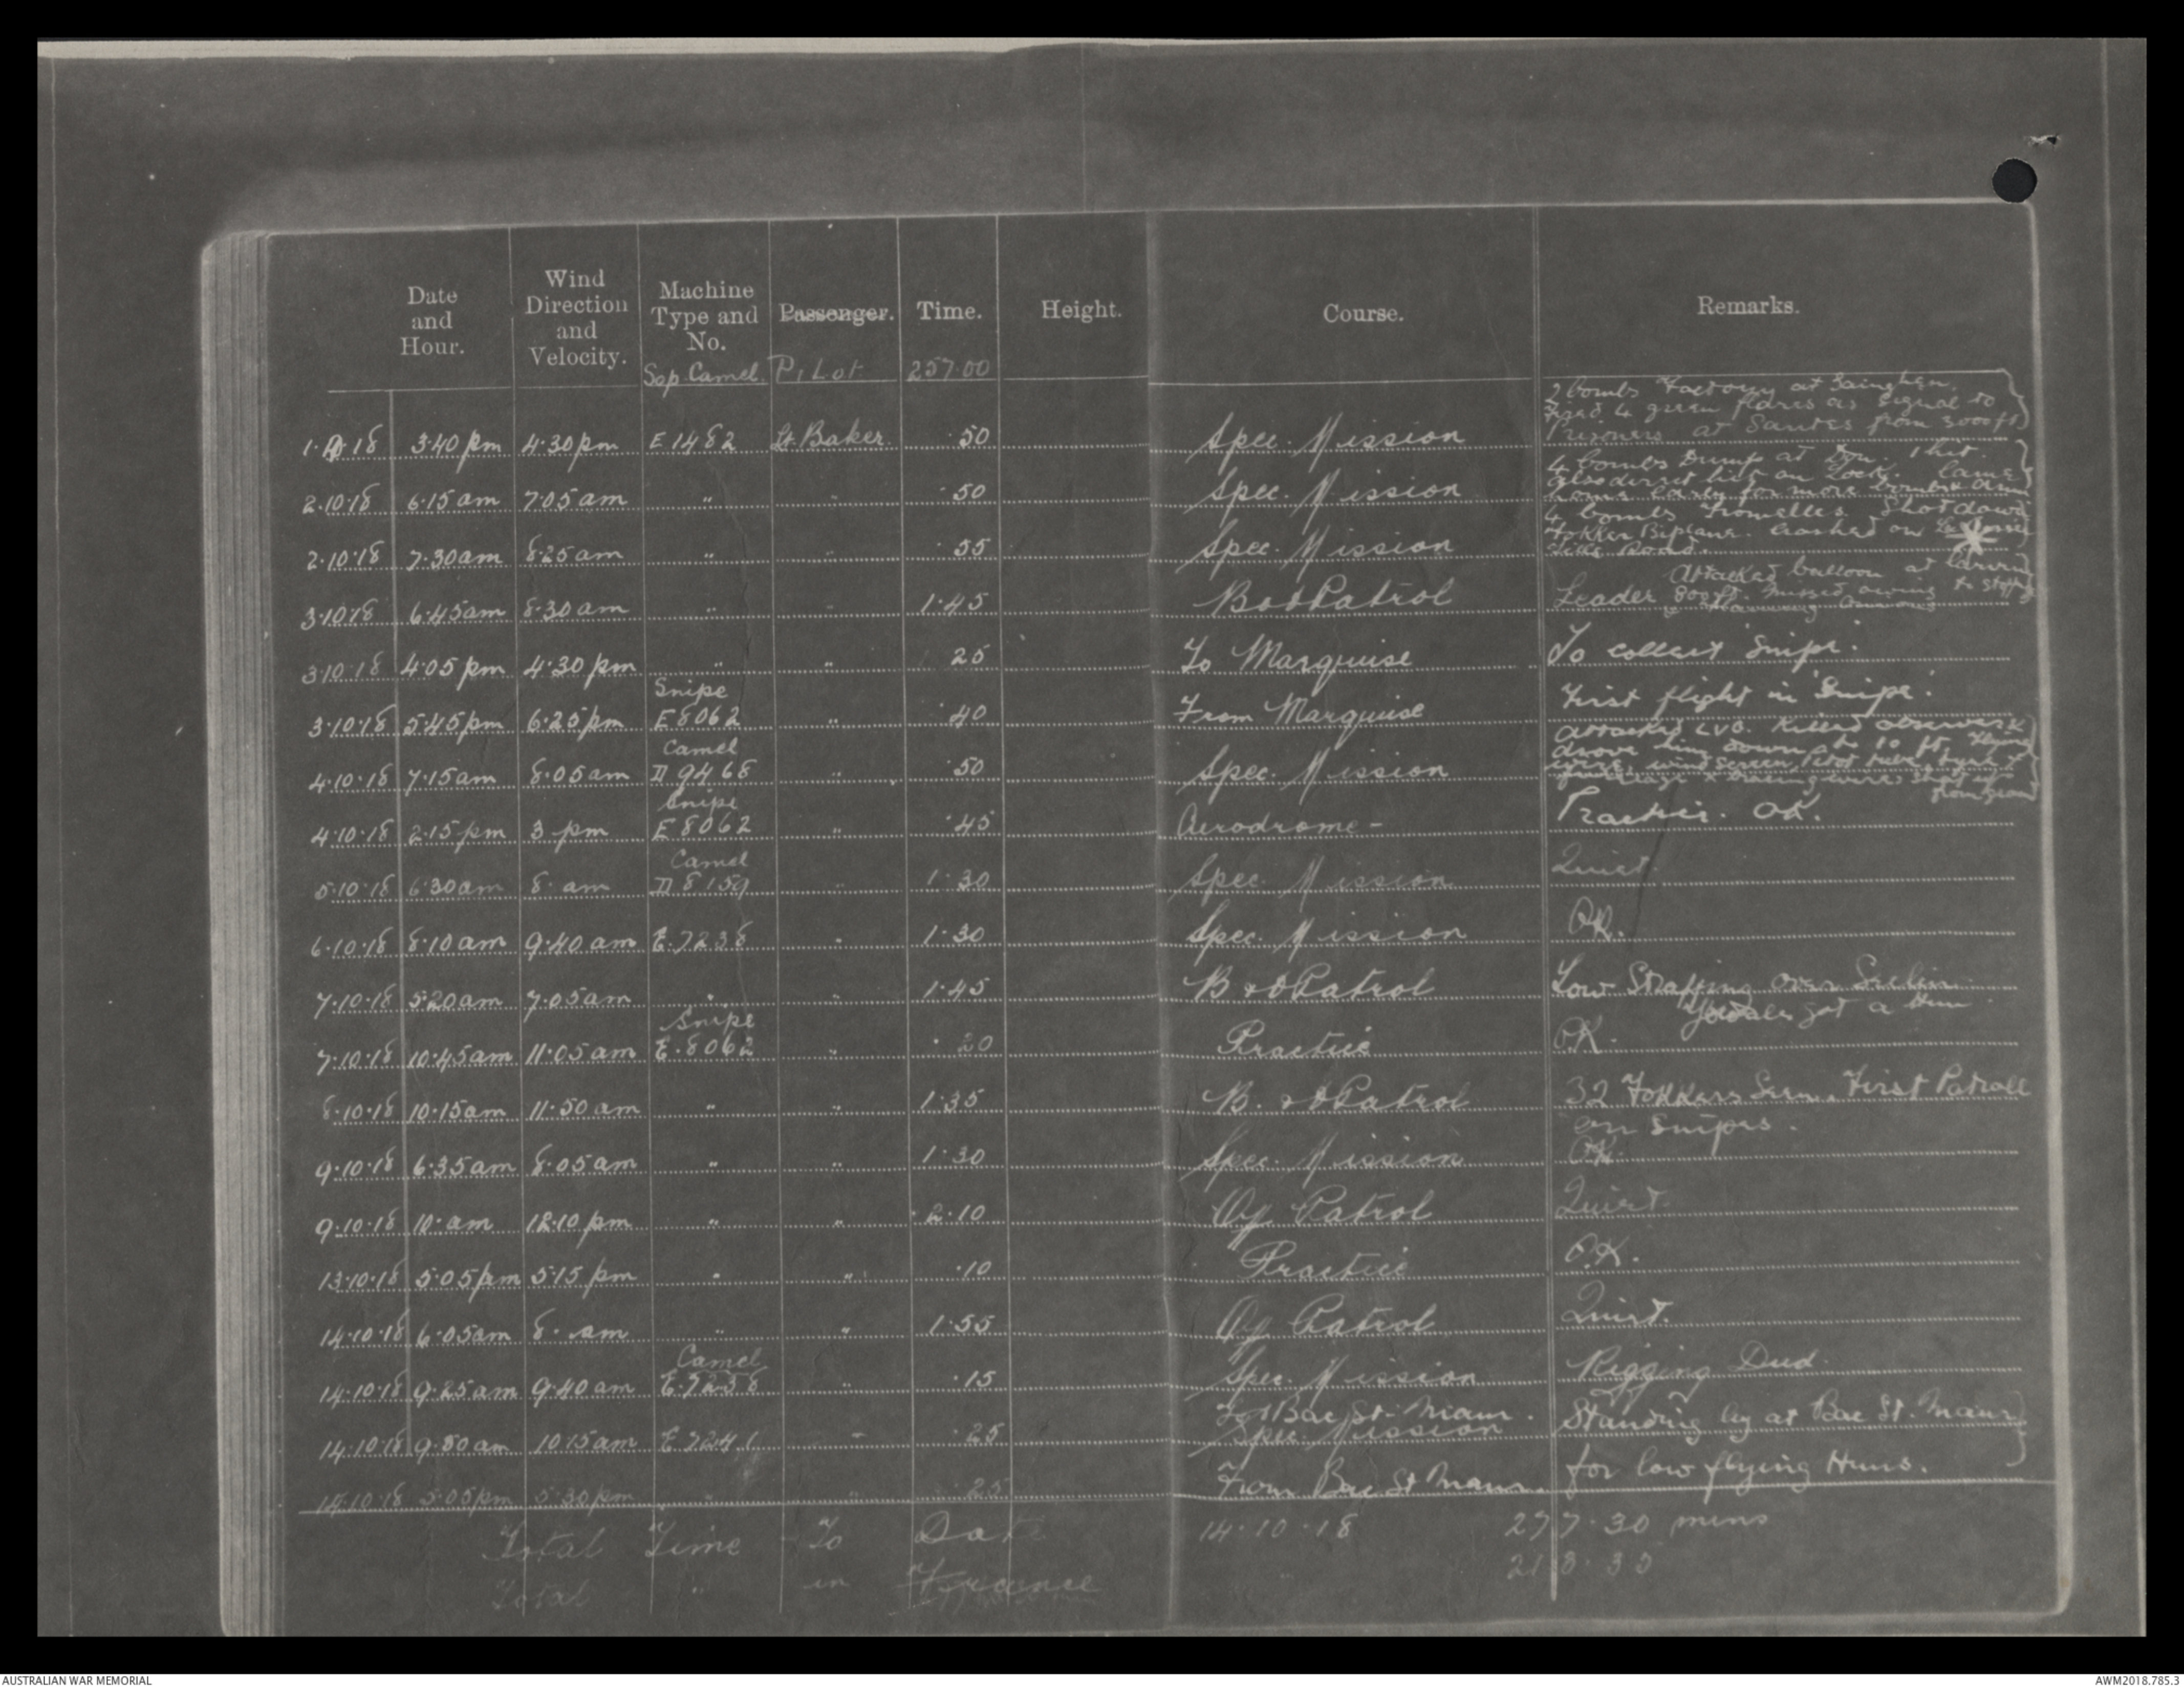 Date and Hour. Wind Direction and Velocity. Machine Type and No. Passenger. Time. Height. Course. Remarks.
Sop Camel. Pilot 257.00
2 bombs Factory at Sainghin.
Fired 4 green flares as signal to
1.10.18 3.40 pm 4.30 pm E 1482 Lt. Baker. .50 Spec. Mission Prisoners at Santes from 3000 ft
4 bombs Dump at Don. 1 hit.
also direct hit on Lock. Came
2.10.18 6.15 am 7.05 am " " .50 Spec. Mission home early for more bombs & amm
4 bombs Fromelles. Shot down
Fokker Biplane. Crashed on
2.10.18 7.30 am 8.25 am " " .55 Spec. Mission Lille Road.
Attacked balloon at
3.10.18 6.45 am 8.30 am " " 1.45 B & O Patrol Leader 800 ft. missed owing to
3.10.18 4.05 pm 4.30 pm " " .25 To Marquise To collect 'Snipe'.
Snipe
3.10.18 5.45 pm 6.25 pm E 8062 " .40 From Marquise First flight in 'Snipe'.
Camel attacked LVG. Killed observer &
drove him down to 10 ft. Flying
4.10.18 7.15 am 8.05 am D 9468 " .50 Spec. Mission wires, windscreen, Pitot tube, tyre &
Snipe fuselage & bracing wires shot
from ground
4.10.18 2.15 pm 3 pm E 8062 " .45 Aerodrome - Practice. OK.
Camel
5.10.18 6.30 am 8. am D 8159 " 1.30 Spec. Mission Quiet.
6.10.18 8.10 am 9.40 am E.7238 " 1.30 Spec. Mission OK.
7.10.18 5.20 am 7.05 am " " 1.45 B & O Patrol Low Straffing over Seclin.
Snipe got a Hun.
7.10.18 10.45 am 11.05 am E.8062 " .20 Practice OK.
8.10.18 10.15 am 11.50 am " " 1.35 B. & O Patrol 32 Fokkers Seen. First Patroll
on Snipes.
9.10.18 6.35 am 8.05 am " " 1.30 Spec. Mission OK.
9.10.18 10. am 12.10 pm " " 2.10 Of Patrol Quiet.
13.10.18 5.05 pm 5.15 pm " " .10 Practice O.K.
14.10.18 6.05 am 8. am " " 1.55 Of Patrol Quiet.
Camel
14.10.18 9.25 am 9.40 am E.7238 " .15 Spec. Mission Rigging Dud.
To Bac St. Maur. Standing by at Bac St. Maur
14.10.18 9.50 am 10.15 am E.7241 " .25 Spec. Mission
for low flying Huns.
14.10.18 5.05 pm 5.30 pm " " .25 From Bac St Maur.
Total Time To Date 14.10.18 277.30 mins
Total " in France 218.35
AUSTRALIAN WAR MEMORIAL AWM2018.785.3